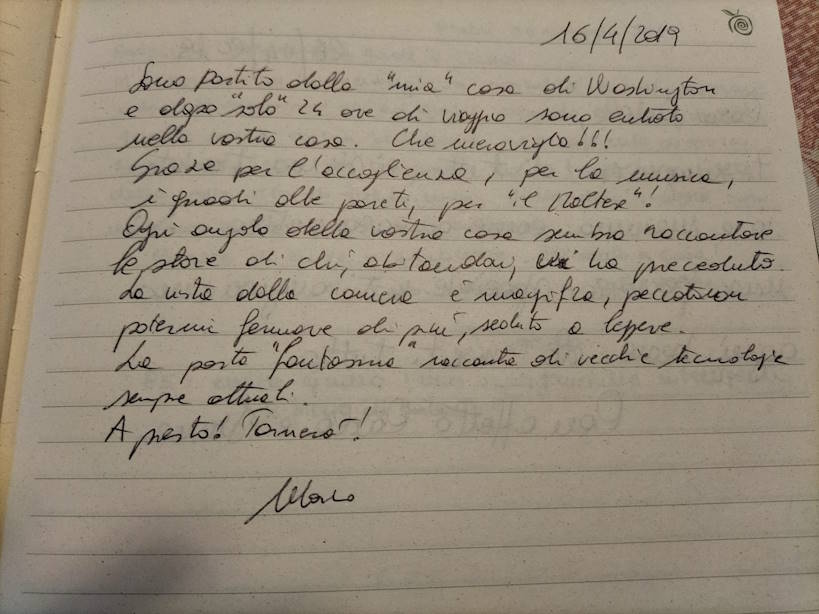 16/4/2019
Sono partito dalla "mia" casa di Washington
e dopo "solo" 24 ore di viaggio sono entrato
nella vostra casa. Che meraviglia!!!
Grazie per l'accoglienza, per la musica,
i quadri alle pareti, per "il Maltese"!
Ogni angolo della vostra casa sembra raccontare
le storie di chi, abitandovi, vi ha preceduto.
La vista dalla camera è magnifica, peccato non
potermi fermare di più, seduto a leggere.
La porta "fantasma" racconta di vecchie tecnologie
sempre attuali.
A presto! Tornerò!
Marco